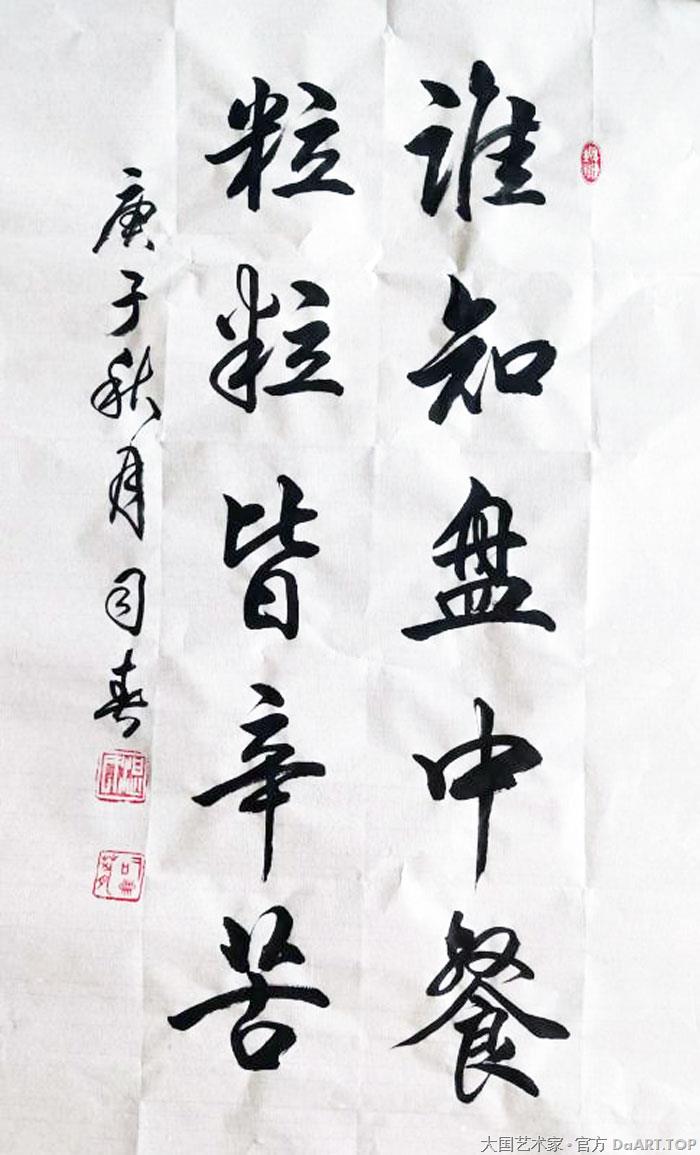 誰知盘中餐
粒粒皆辛苦
庚子秋月司春
大国艺术家·官方 DaART.TOP